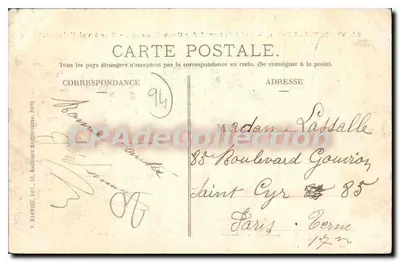 CARTE POSTALE.
Tous les pays étrangers n'acceptent pas la correspondance au recto. (Se renseigner à la poste).
CORRESPONDANCE
ADRESSE
94
Bonne santé
CPADeCollection.com
Madame Lassalle
85 Boulevard Gouvion
Saint Cyr 85
Paris. Terne
17e